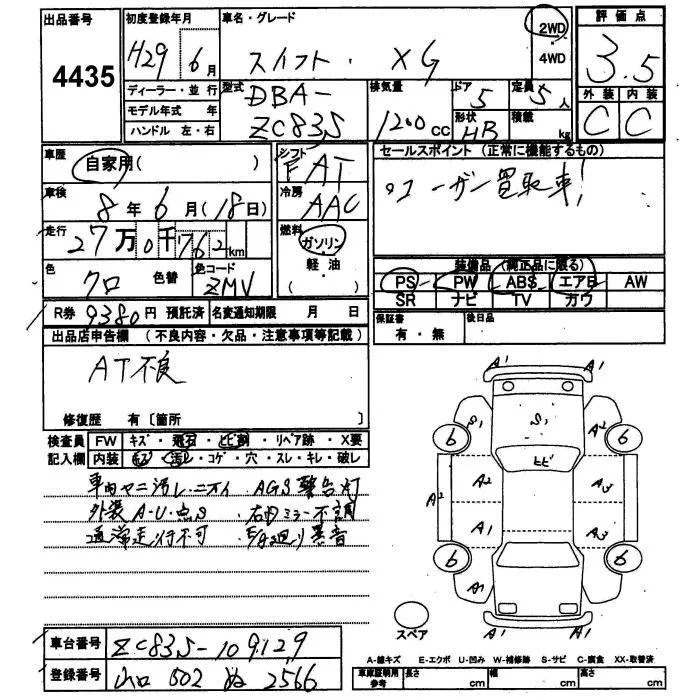 出品番号 初度登録年月 車名・グレード 評価点
4435 H29年 6月 スイフト・XG 2WD・4WD 3.5
ディーラー・並行 型式 排気量 ドア 定員 外装 内装
モデル年式 年 DBA- 1200cc 5 5人 C C
ハンドル 左・右 ZC83S 形状 HB 積載 kg
車歴 自家用( ) シフト FAT セールスポイント (正常に機能するもの)
車検 8年6月(18日) 冷房 AAC ユーザー買取車!
走行 27万0千762km 燃料 ガソリン・軽油・
色 クロ 色替 色コード ZMV 装備品 (純正品に限る)
PS PW ABS エアB AW
SR ナビ TV カワ
R券 9380円 預託済 名変通知期限 月 日 保証書 有・無 後日品
出品店申告欄 (不良内容・欠品・注意事項等記載)
AT不良
修復歴 有〔箇所 〕
検査員 FW キズ・飛石・ヒビ割・リペア跡・X要
記入欄 内装 キズ・汚レ・コゲ・穴・スレ・キレ・破レ
車内ヤニ汚レ・ニオイ AGS警告灯
外装A-U・点S 右ミラー不調
通常走行不可 異音
A1 A1
S1 S1 A2
6 6
ヒビ
A2 A2 A3
A1 A3
6 6
A1 A1
A1 A1
スペア
車台番号 ZC83S-109129
登録番号 山口 502 ぬ 2566
A-線キズ E-エクボ U-凹み W-補修跡 S-サビ C-腐食 XX-取替済
車庫証明用参考 長さ cm 幅 cm 高さ cm